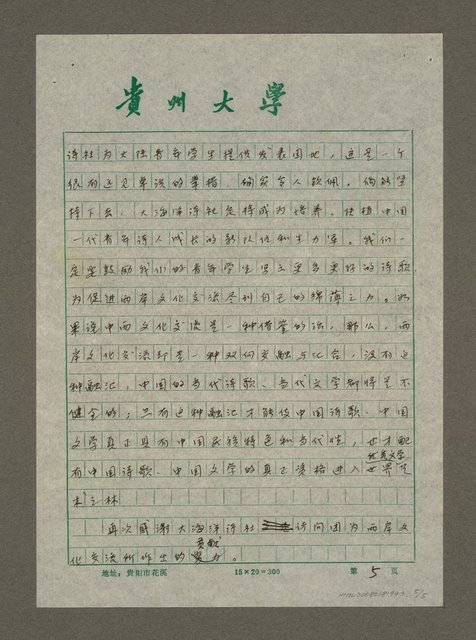 貴州大學
诗社为大陆青年学生提供发表园地，这是一个
很有远见卓识的举措，确实令人钦佩。倘能坚
持下去，大海洋诗社定将成为培养、扶植中国
一代青年诗人成长的新队伍和生力军。我们一
定要鼓励我们的青年学生写出更多更好的诗歌
为促进两岸文化交流尽到自己的绵薄之力。如
果说中西文化交流是一种借鉴的话，那么，两
岸文化交流却是一种双向交融与汇合，没有这
种融汇，中国的当代诗歌、当代文学都将是不
健全的；只有这种融汇才能使中国诗歌、中国
文学真正具有中国民族特色和当代性，也才配
有中国诗歌、中国文学的真正资格进入世界优秀文学艺
术之林
再次感谢大海洋诗社访问团为两岸文
化交流所作出的贡献。
地址：贵阳市花溪 15×20=300 第 5 页
5/5